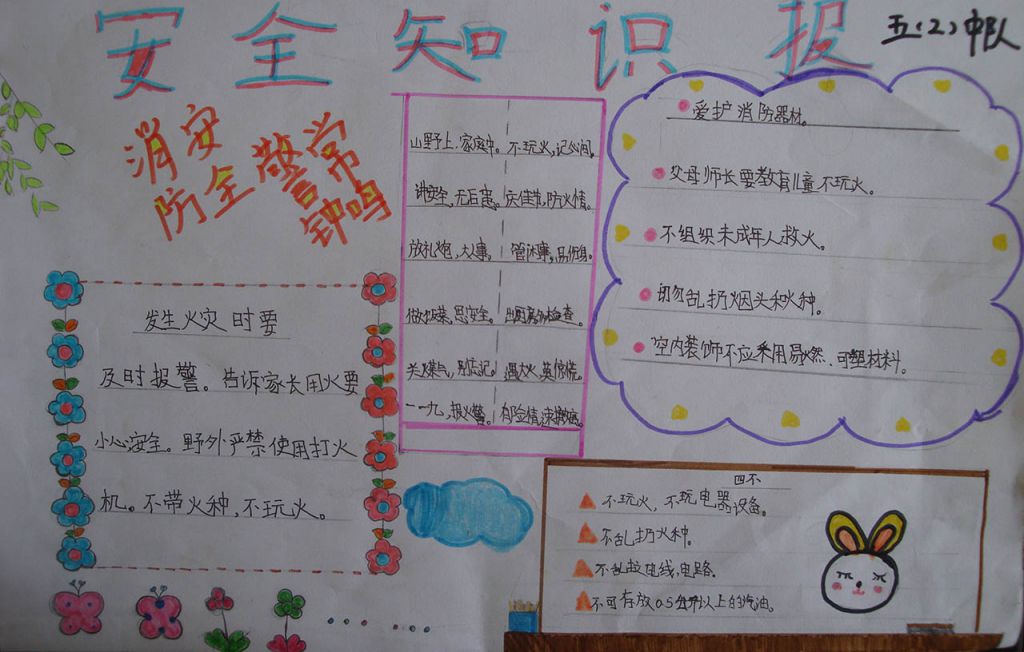 安全知识报
五(2)中队
消防安全警钟常鸣
发生火灾时要
及时报警。告诉家长用火要
小心安全。野外严禁使用打火
机。不带火种,不玩火。
山野上,家庭中。不玩火,记心间。
讲安全,无后患。庆佳节,防火情。
放礼炮,大人事。管闲事,
思安全。出门前检查。
关煤气,别忘记。遇大火,莫惊慌。
一一九,报火警。有险情,速撤离。
爱护消防器材。
父母师长要教育儿童不玩火。
不组织未成年人救火。
切勿乱扔烟头和火种。
室内装饰不应采用易燃、可塑材料。
四不
不玩火,不玩电器设备。
不乱扔火种。
不乱拉电线,电路。
不可存放0.5公升以上的汽油。